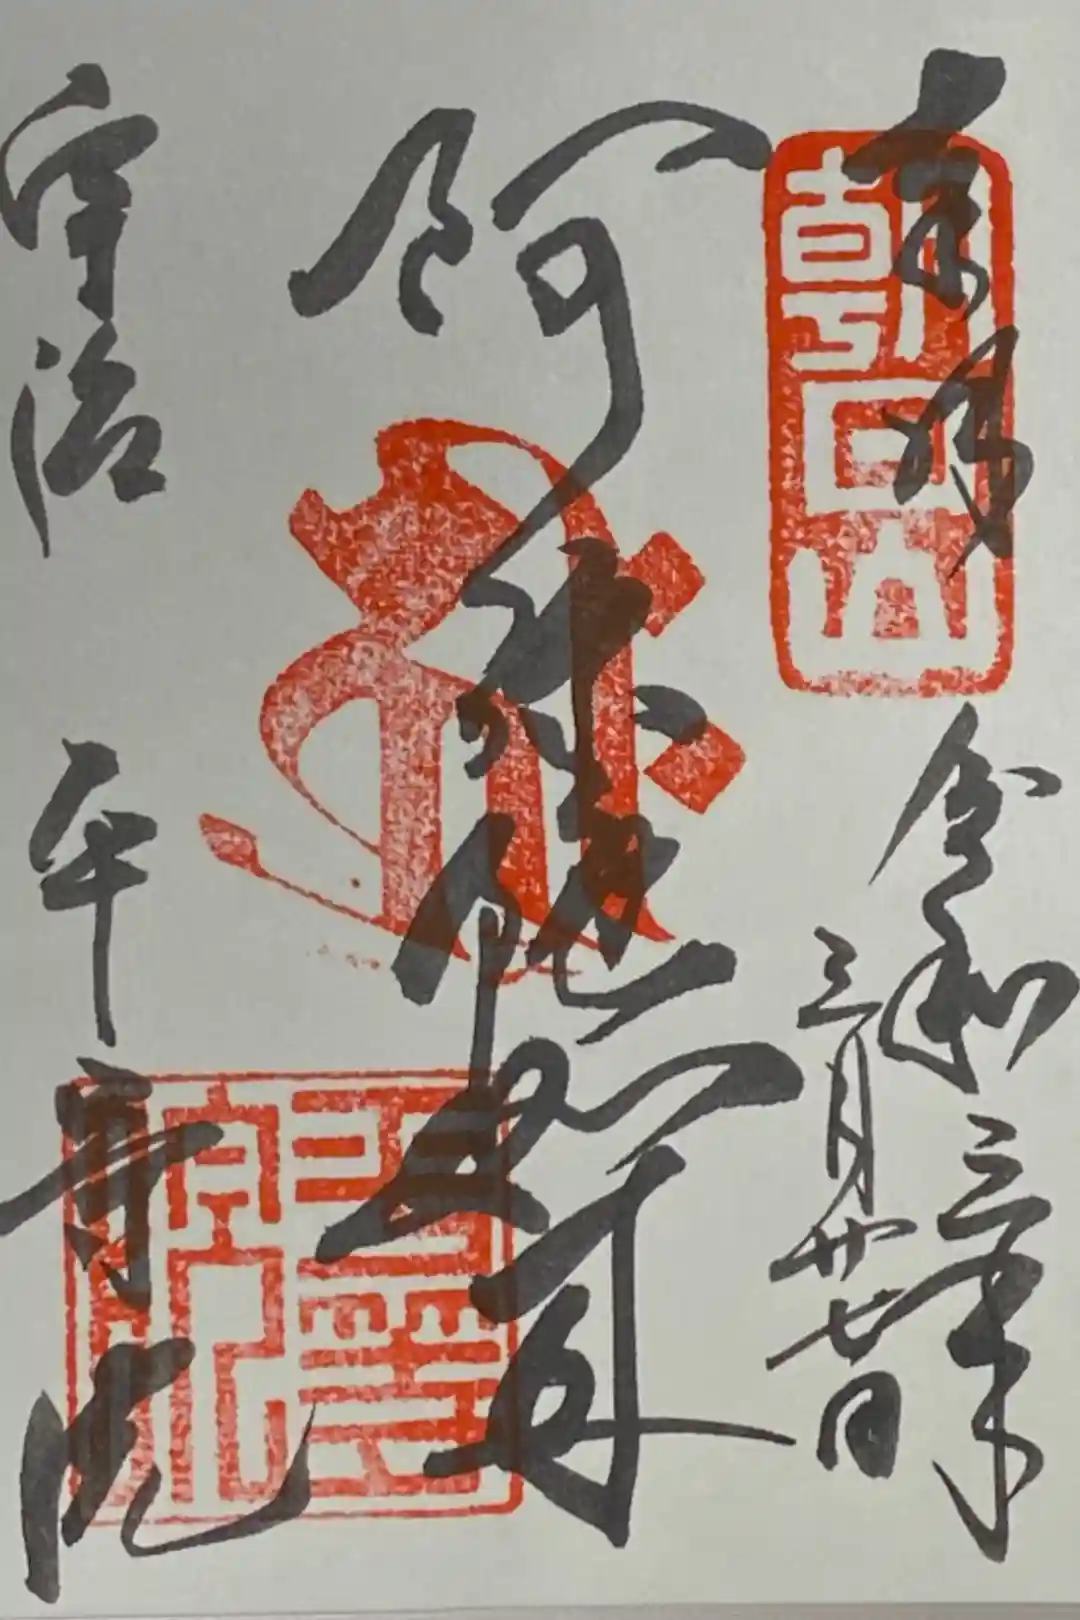 奉拝
朝日山
令和三年
三月廿七日
阿弥陀如来
宇治 平等院